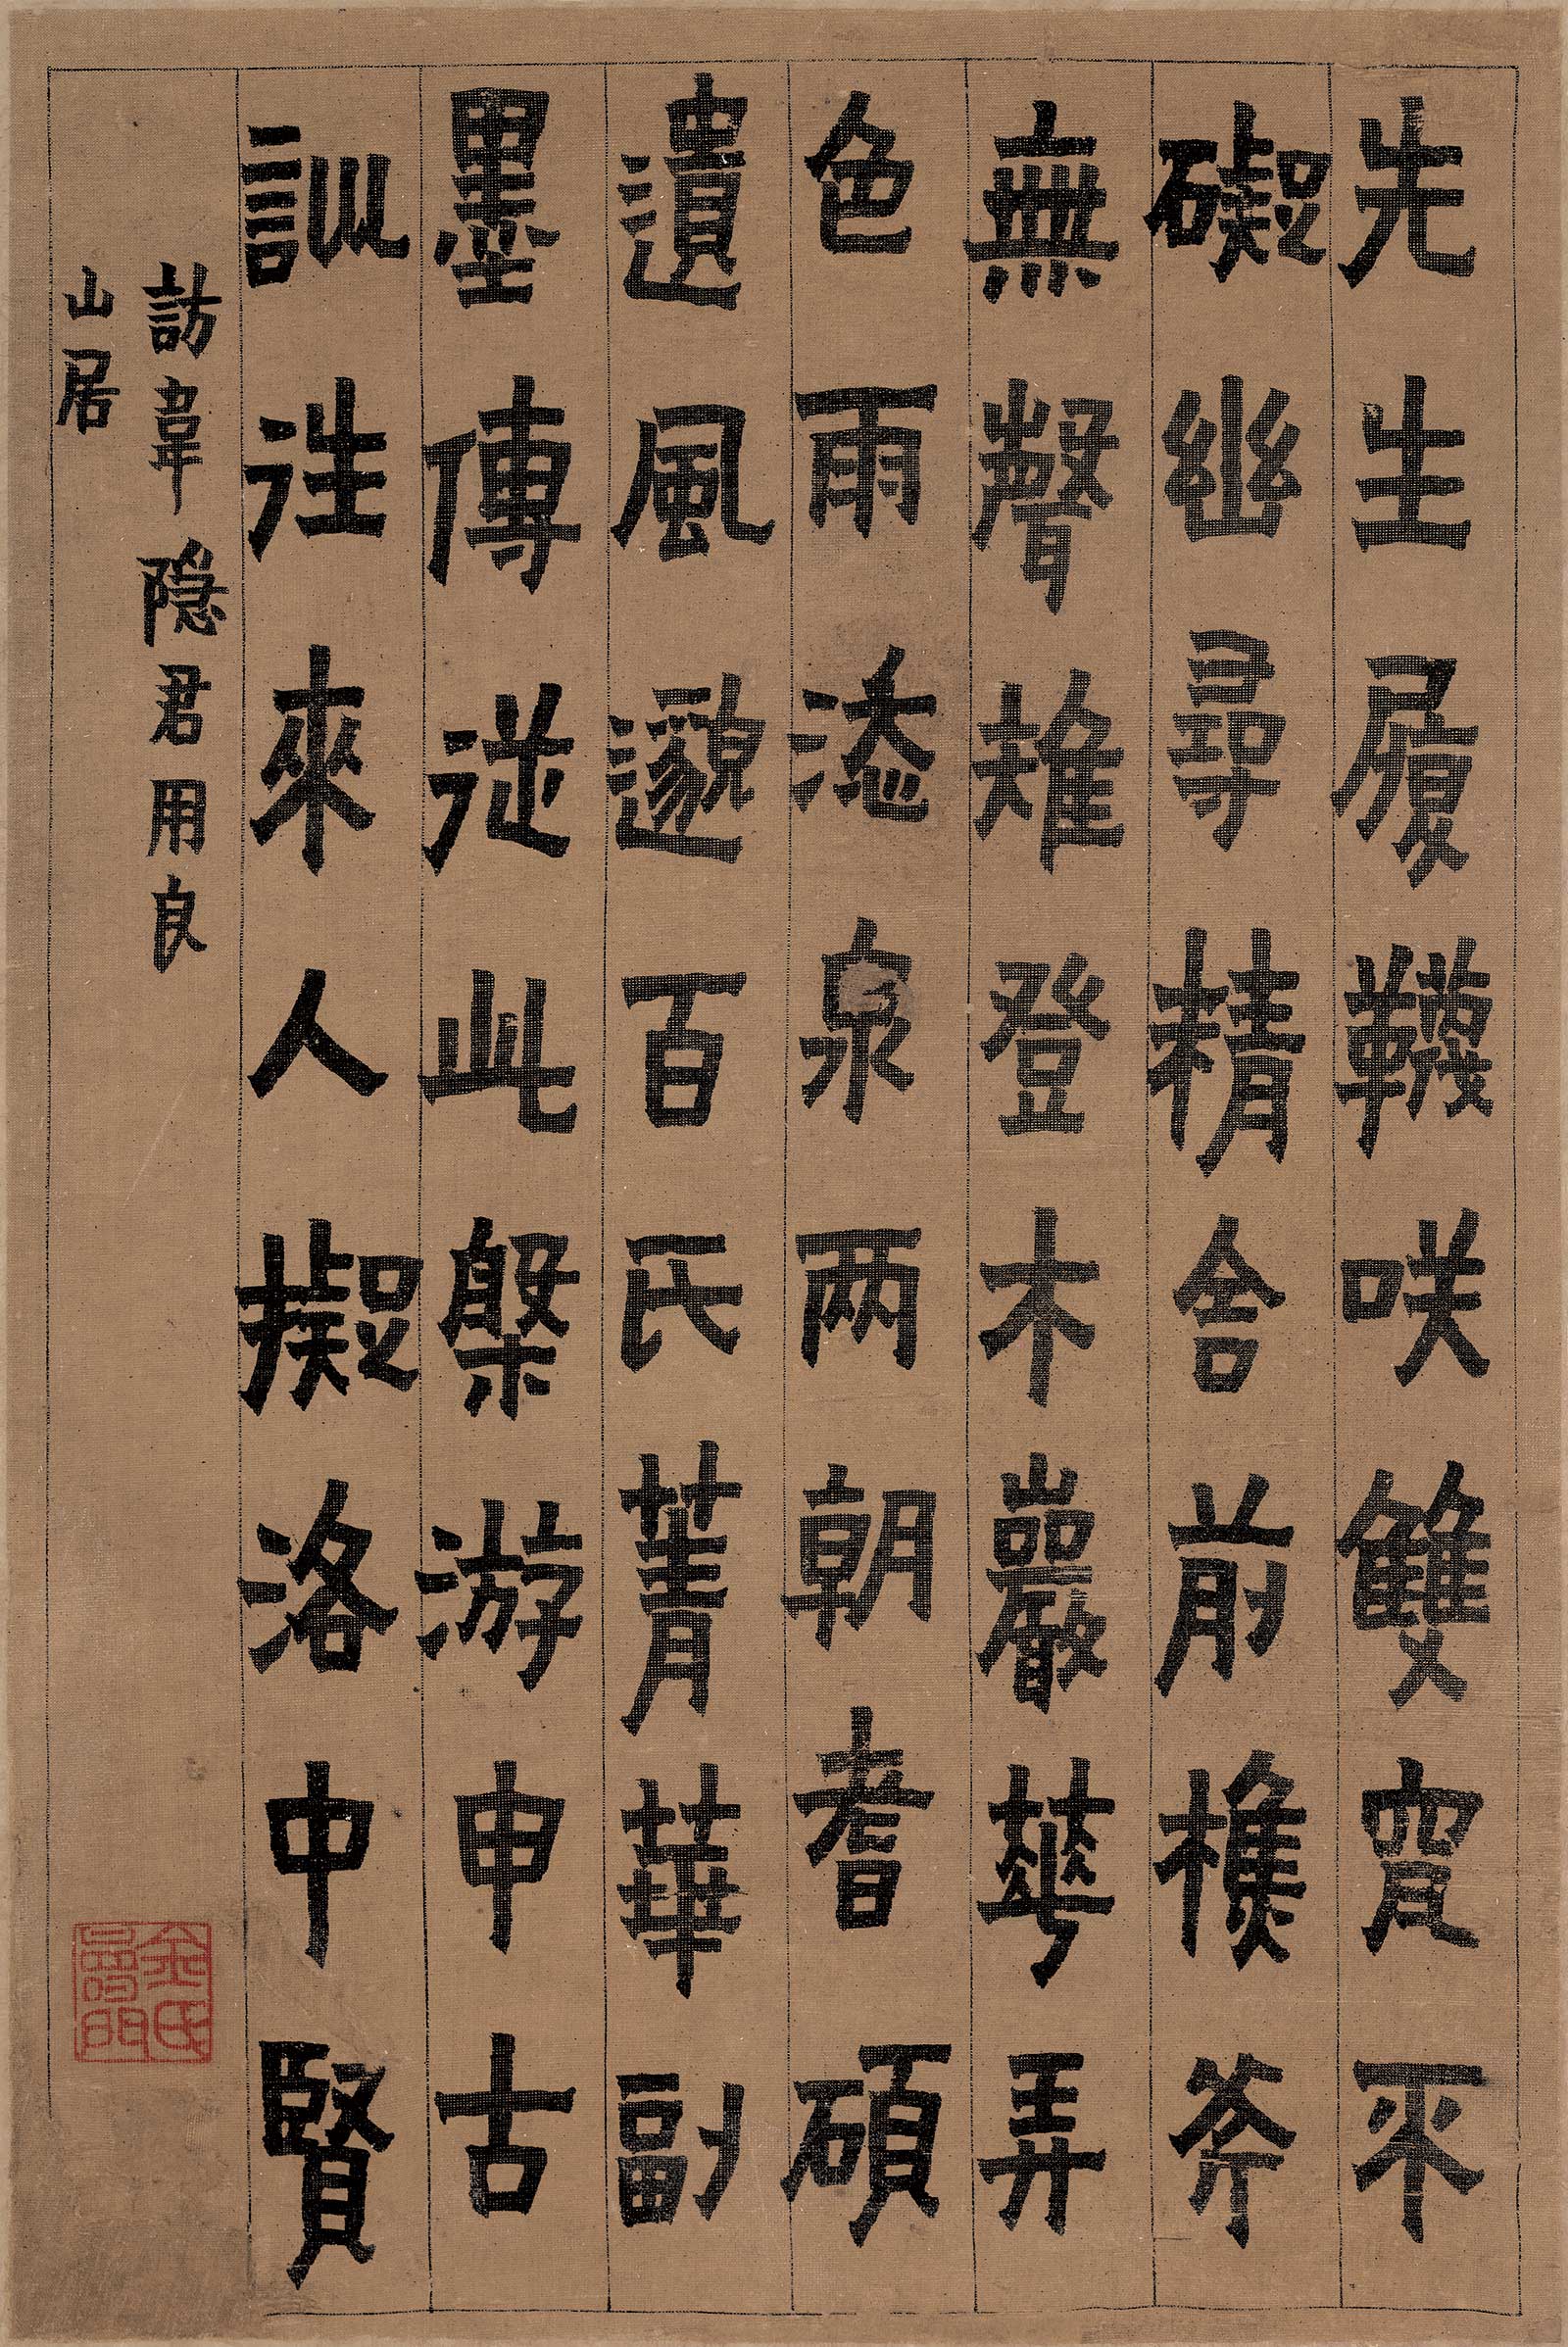 先生履韈咲雙穿不
礙幽尋精舍前樵斧
無聲雉登木巖華弄
色雨添泉两朝耆碩
遺風邈百氏菁華副
墨傳從此槃游申古
訓往來人擬洛中賢
訪韋隱君用良
山居
金氏壽門